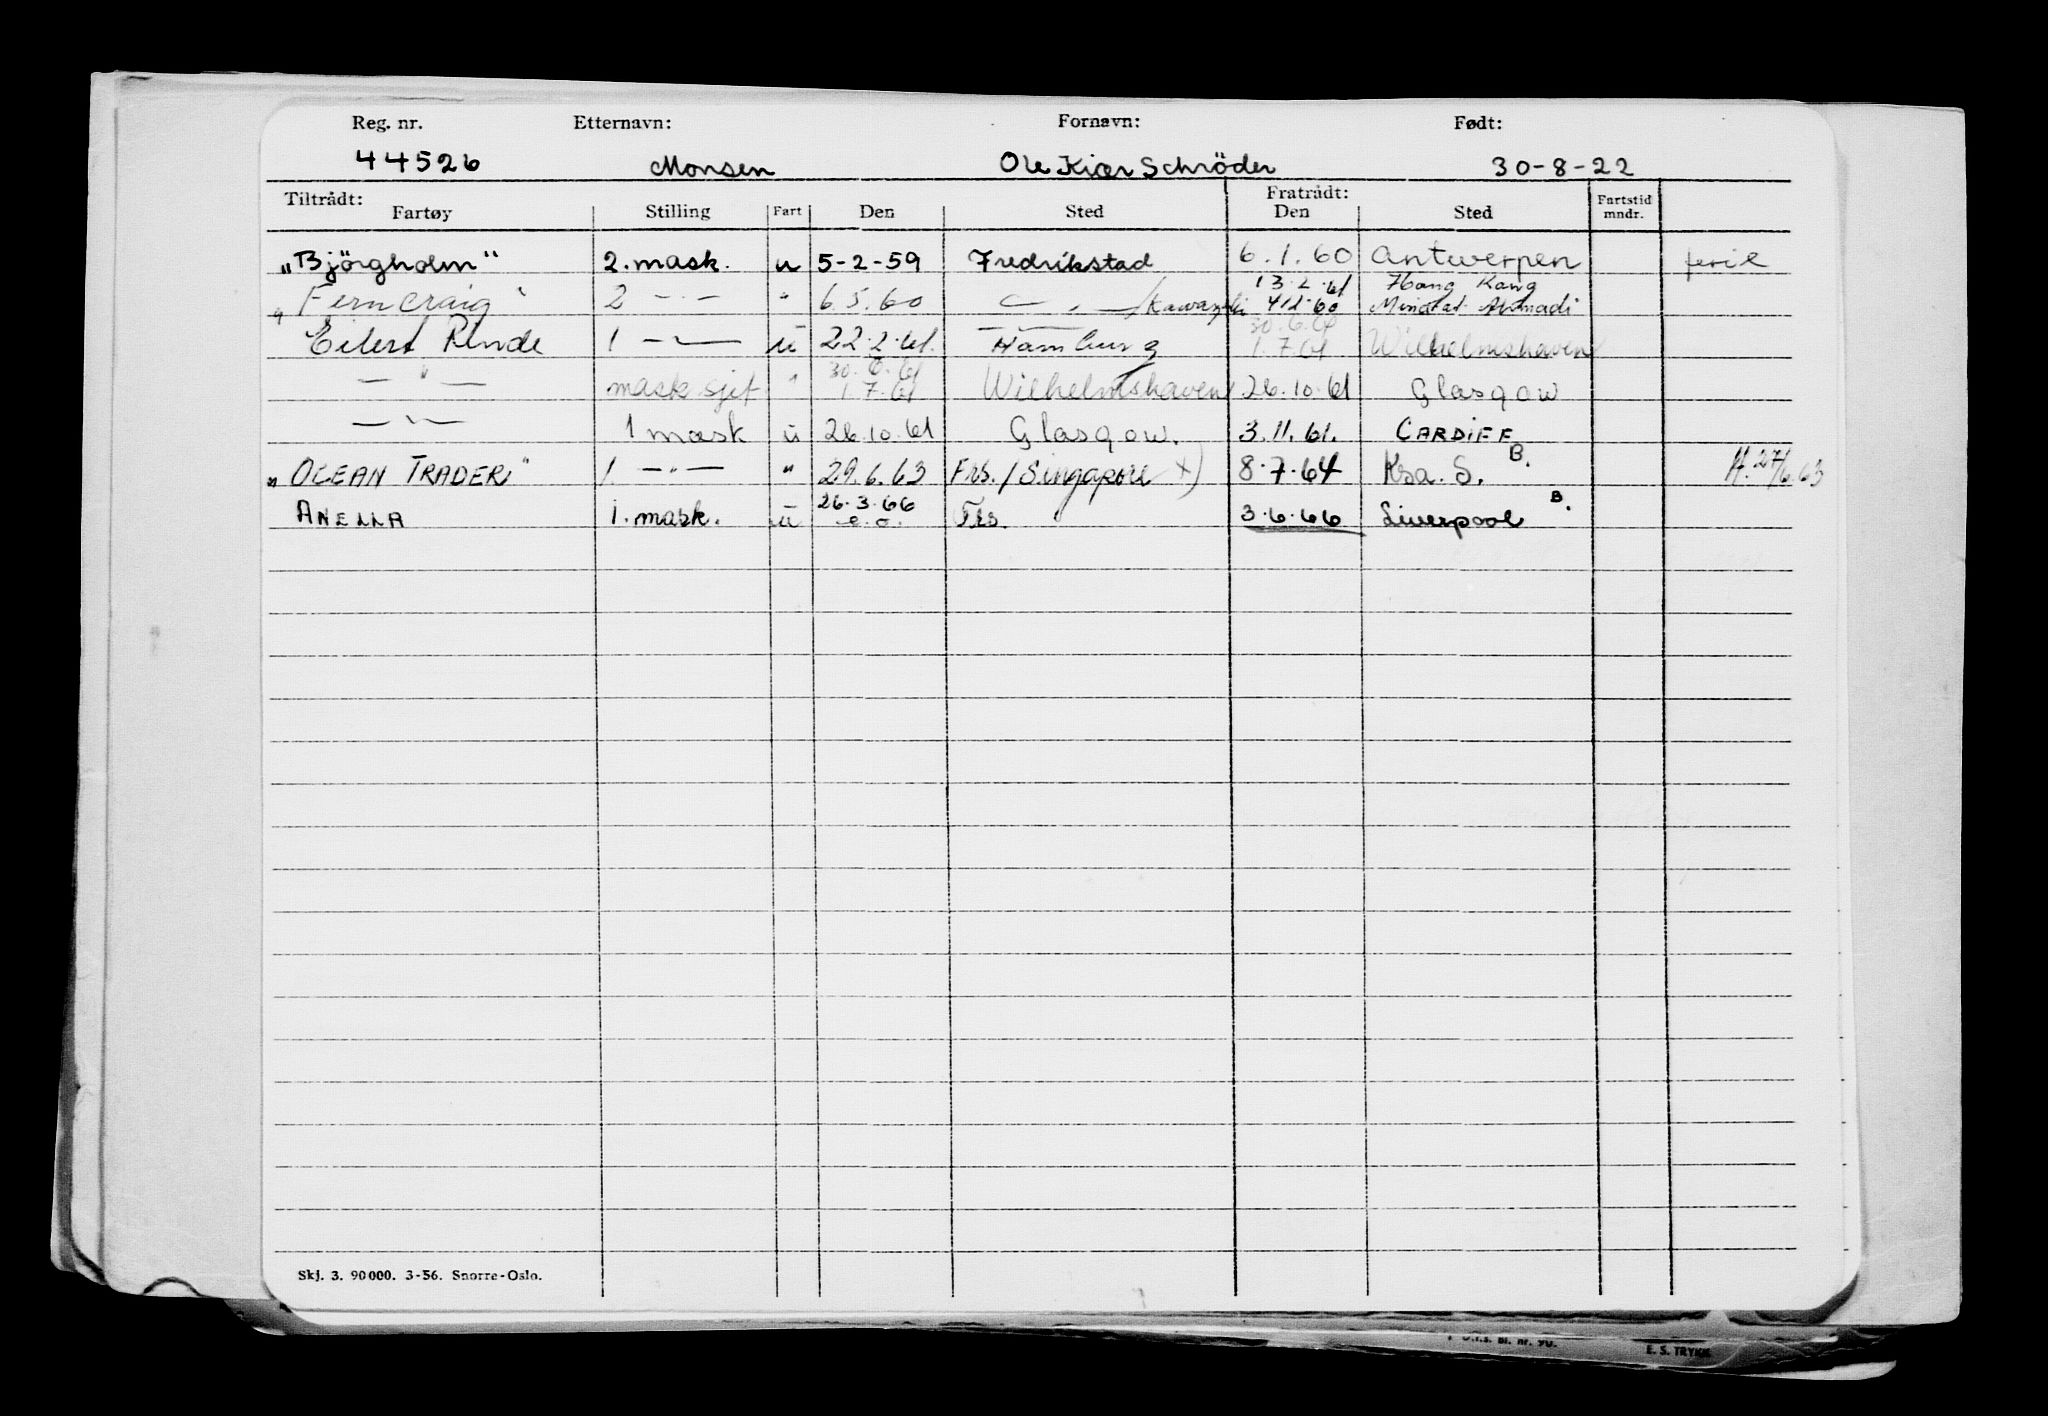 Reg. nr. Etternavn: Fornavn: Født:
44526 Monsen Ole Kiær Schröder 30-8-22
Tiltrådt: Fratrådt:
Fartøy Stilling Fart Den Sted Den Sted Fartstid mndr.
„Björgholm" 2. mask. u 5-2-59 Fredrikstad 6.1.60 Antwerpen ferie
13.2.61 Hong Kong
„Ferncraig" 2 — " — " 6.5.60 — " — /Kawasaki 4/12-60 Mina al Ahmadi
30.6.61
Eilert Rinde 1 — " — u 22.2.61. Hamburg 1.7.61 Wilhelmshaven
30.6.61
— " — mask sjef " 1.7.61 Wilhelmshaven 26.10.61 Glasgow
— " — 1 mask u 26.10.61 Glasgow. 3.11.61. CARDIFF
„OCEAN TRADER" 1 — " — " 29.6.63 Frs. / Singapore x) 8.7.64 Ksa. S. B. H. 27/6.63
26.3.66
ANELLA 1. mask. u e.o. Frs. 3.6.66 Liverpool B.
Skj. 3. 90000. 3-56. Snorre-Oslo.
E. S. TRYKK